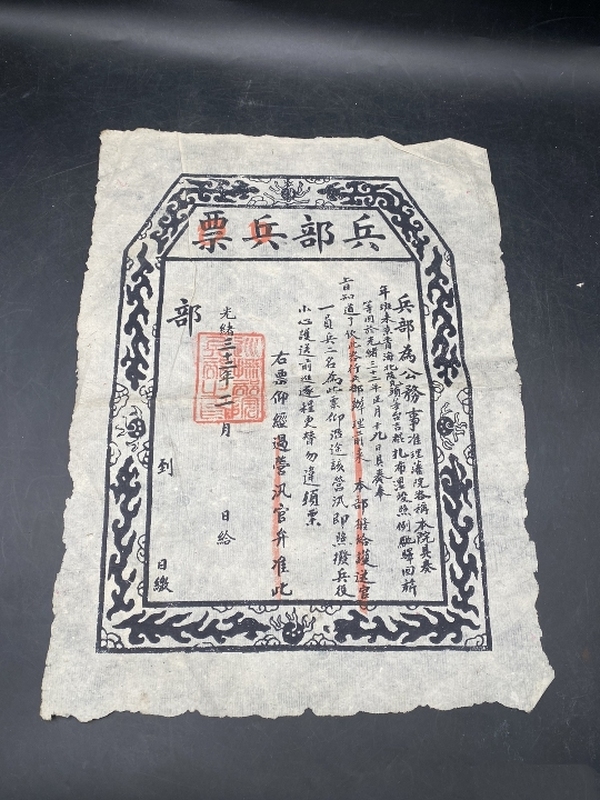 兵部兵票
兵部為公務事准理藩院咨稱本院具奏
年班來京青海北陵頭等台吉棍扎布濕凌照例馳驛回籍
等因於光緒三十二年正月十九日具奏奉
旨知道了欽此咨行兵部辦理前來本部發給護送官
一員兵二名為此票仰沿途該營汛即照撥兵役
小心護送前進逐程更替勿違須票
右票仰經過營汛官弁准此
光緒三十二年二月 日給
部 到 日繳